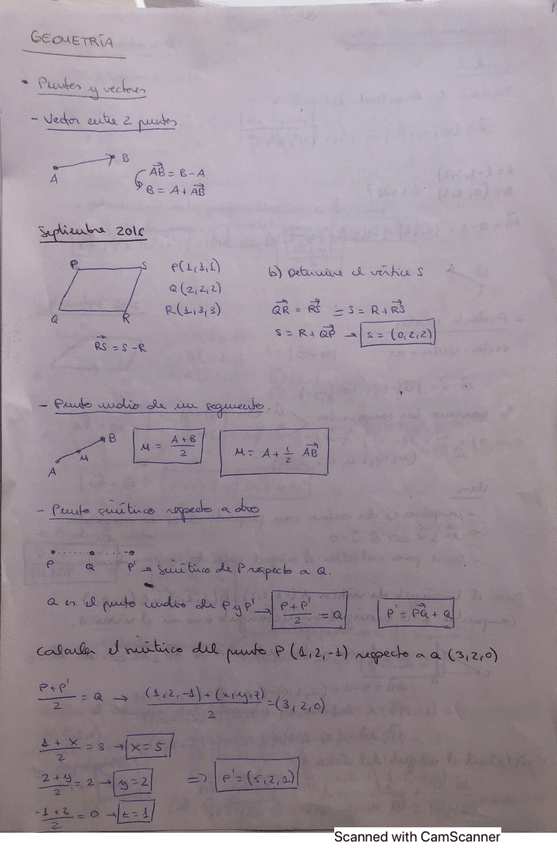 GEOMETRÍA
• Puntos y vectores
- Vector entre 2 puntos
A B
AB = B - A
B = A + AB
Septiembre 2016
P S
Q R
P(1,1,1)
Q(2,2,2)
R(1,3,3)
RS = S - R
b) Determine el vértice S
QR = RS = S = R + RS
S = R + QP → S = (0,2,2)
- Punto medio de un segmento.
A M B
M = A+B/2
M = A + 1/2 AB
- Punto simétrico respecto a otro
P Q P' → Simétrico de P respecto a Q.
Q es el punto medio de P y P' → P+P'/2 = Q
P' = PQ + Q
Calcular el simétrico del punto P(1,2,-1) respecto a Q(3,2,0)
P+P'/2 = Q → (1,2,-1)+(x,y,z)/2 = (3,2,0)
1+x/2 = 3 → x=5
2+y/2 = 2 → y=2 => P'=(5,2,1)
-1+z/2 = 0 → z=1
Scanned with CamScanner